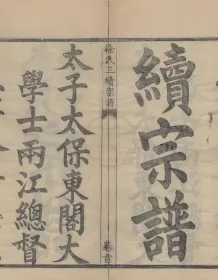 續宗譜
徐氏三續宗譜
卷首
太子太保東閣大
學士兩江總督